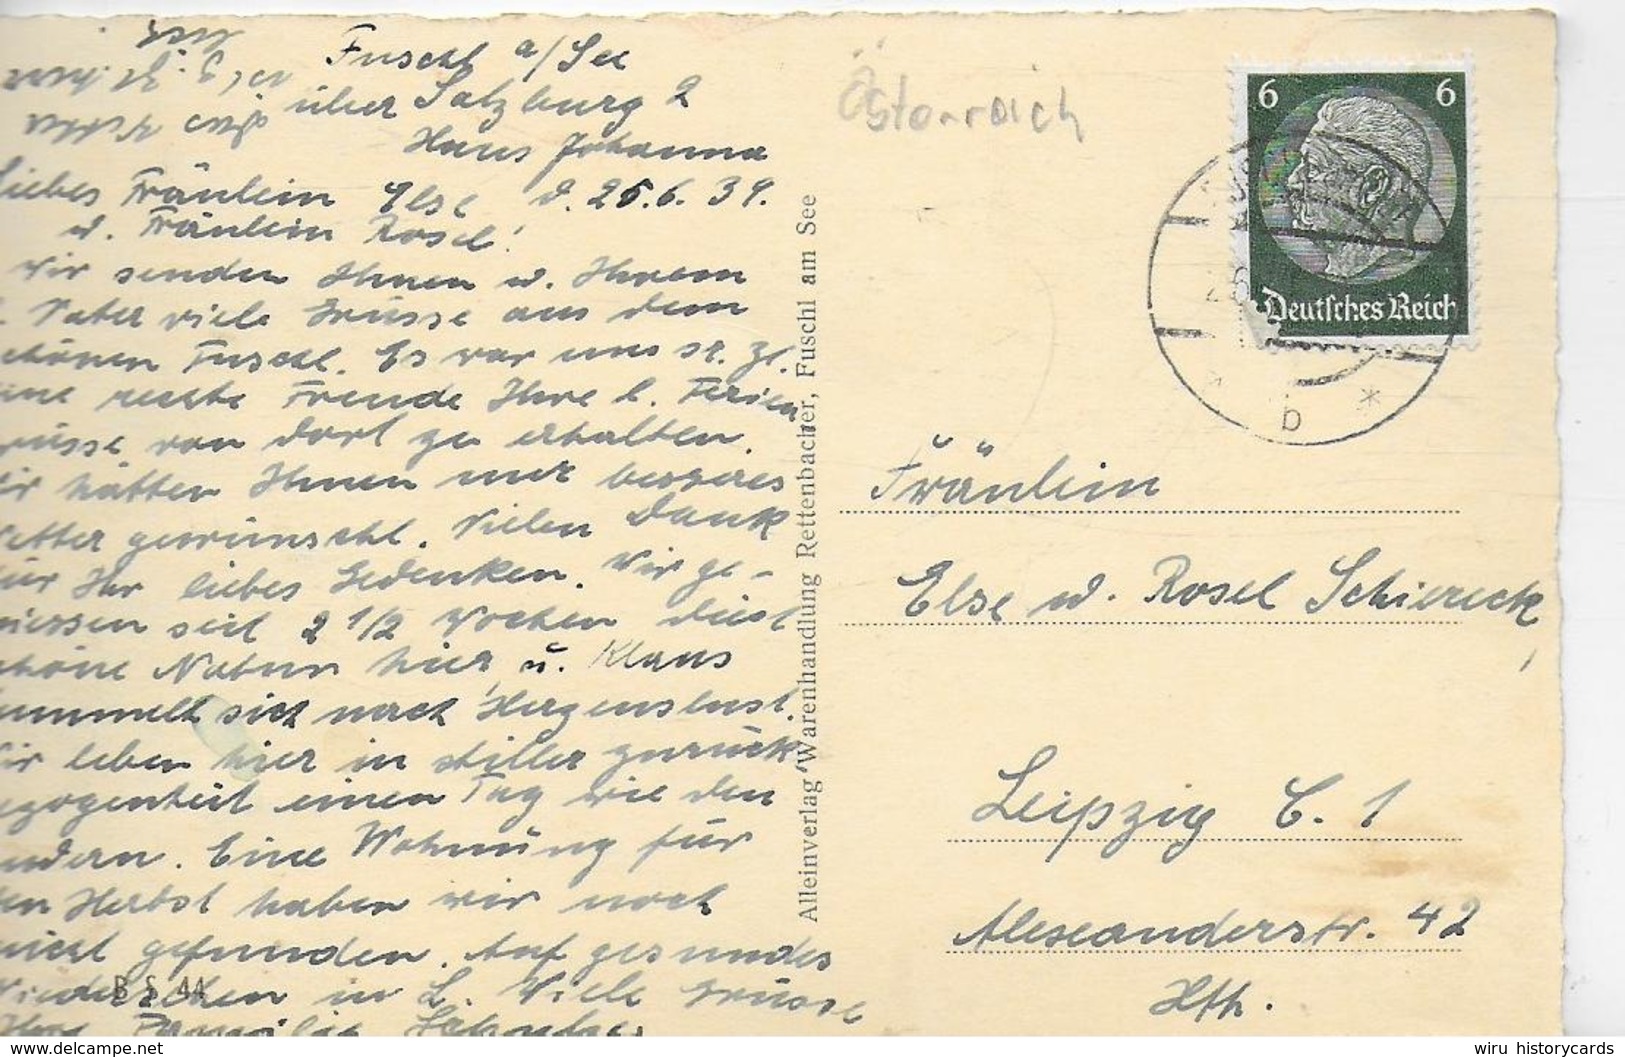 Fuschl a/See
über Salzburg 2
Haus Johanna
Liebes Fräulein Else d. 25.6.39.
u. Fräulein Rosel!
Wir senden Ihnen u. Ihrem
l. Vater viele Grüsse aus dem
schönen Fuschl. Es war uns sr. Zt.
eine rechte Freude Ihre l. Ferien
grüsse von dort zu erhalten.
Wir hätten Ihnen nur besseres
Wetter gewünscht. Vielen Dank
für Ihr liebes Gedenken. Wir ge-
niessen seit 2 1/2 Wochen diese
schöne Natur hier, u. Klaus
tummelt sich nach Herzenslust.
Wir leben hier in stiller Zurück
gezogenheit einen Tag wie den
andern. Eine Wohnung für
den Herbst haben wir noch
nicht gefunden. Auf gesundes
Wiedersehen in L. Viele Grüsse
Ihre Familie
B S 44
Alleinverlag Warenhandlung Rettenbacher, Fuschl am See
Österreich
6 6
Deutsches Reich
b *
Fräulein
Else u. Rosel Schiereck,
Leipzig C. 1
Alexanderstr. 42
Hth.
wiru historycards
www.delcampe.net